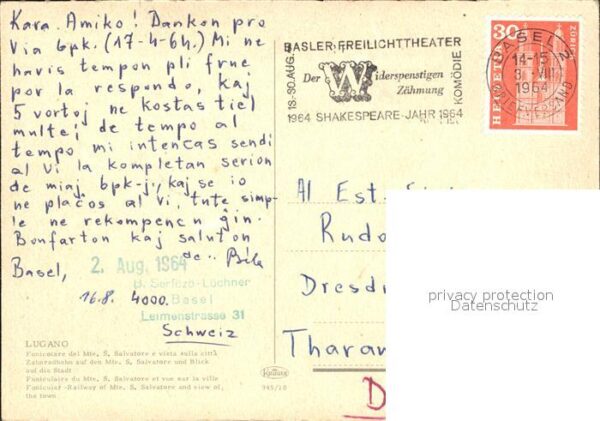 Kara Amiko! Dankon pro
Via bpk. (17-4-64.) Mi ne
havis tempon pli frue
por la respondo, kaj
5 vortoj ne kostas tiel
multe! de tempo al
tempo mi intencas sendi
al Vi la kompletan serion
de miaj bpk-j, kaj se io
ne plaĉos al Vi, tute simp-
le ne rekompencu ĝin.
Bonfarton kaj saluton
de
Basel,
16.8. 4000.
2. Aug. 1964
Basel
Leimenstrasse 31
Schweiz
LUGANO
Funicolare del Mte. S. Salvatore e vista sulla città
Zahnradbahn auf den Mte. S. Salvatore und Blick
auf die Stadt
Funiculaire du Mte. S. Salvatore et vue sur la ville
Funicular-Railway of Mte. S. Salvatore and view of
the town
BASLER FREILICHTTHEATER
18.-30. AUG.
Der Widerspenstigen
Zähmung
KOMÖDIE
1964 SHAKESPEARE-JAHR 1964
BASEL 2
14-15
VIII
1964
30
HELVETIA
Al
Rudo
Dresd
Tharan
D
privacy protection
Datenschutz